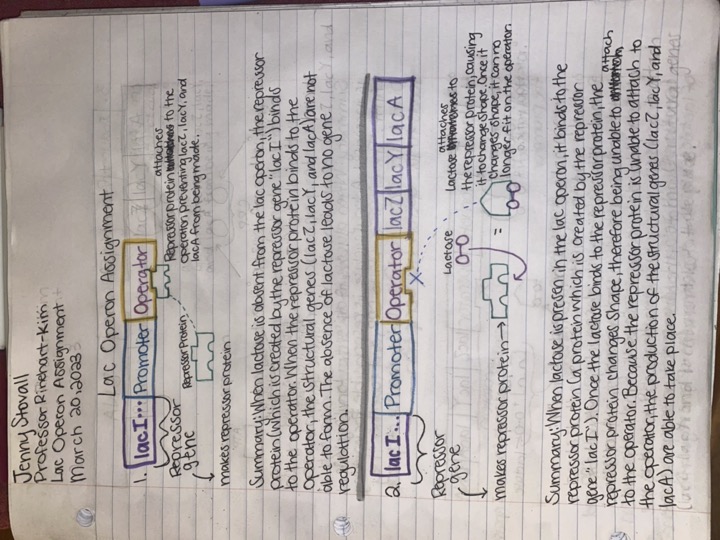 Jenny Stovall
Professor Rinehart-Kim
Lac Operon Assignment
March 20, 2023
Lac Operon Assignment
1. lacI... Promoter Operator
Repressor gene
makes repressor protein
Repressor Protein
attaches
Repressor protein to the
operator, preventing lacZ, lacY, and
lacA from being made.
Summary: When lactose is absent from the lac operon, the repressor
protein (which is created by the repressor gene "lac I") binds
to the operator. When the repressor protein binds to the
operator, the structural genes (lacZ, lacY, and lacA) are not
able to form. The absence of lactose leads to no gene
regulation.
2. lacI... Promoter Operator lacZ lacY lacA
Repressor
gene
makes repressor protein
Lactose
=
X
attaches
Lactose to
the repressor protein, causing
it to change shape. Once it
changes shape, it can no
longer fit on the operator.
Summary: When lactose is presen. in the lac operon, it binds to the
repressor protein (a protein which is created by the repressor
gene "lac I"). Once the lactose binds to the repressor protein, the
attach
repressor protein changes shape, therefore being unable to
to the operator. Because the repressor protein is unable to attach to
the operator, the production of the structural genes (lacZ, lacY, and
lacA) are able to take place.